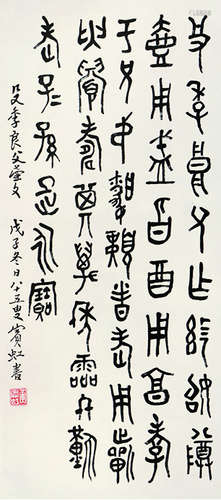 殳季良父乍始尊
壺用盛旨酉用享孝
于兄弟婚顜者老用祈
匄眉壽其萬年霝冬難
老子孫是永寶
殳季良父壺文 戊子冬日八十五叟賓虹書